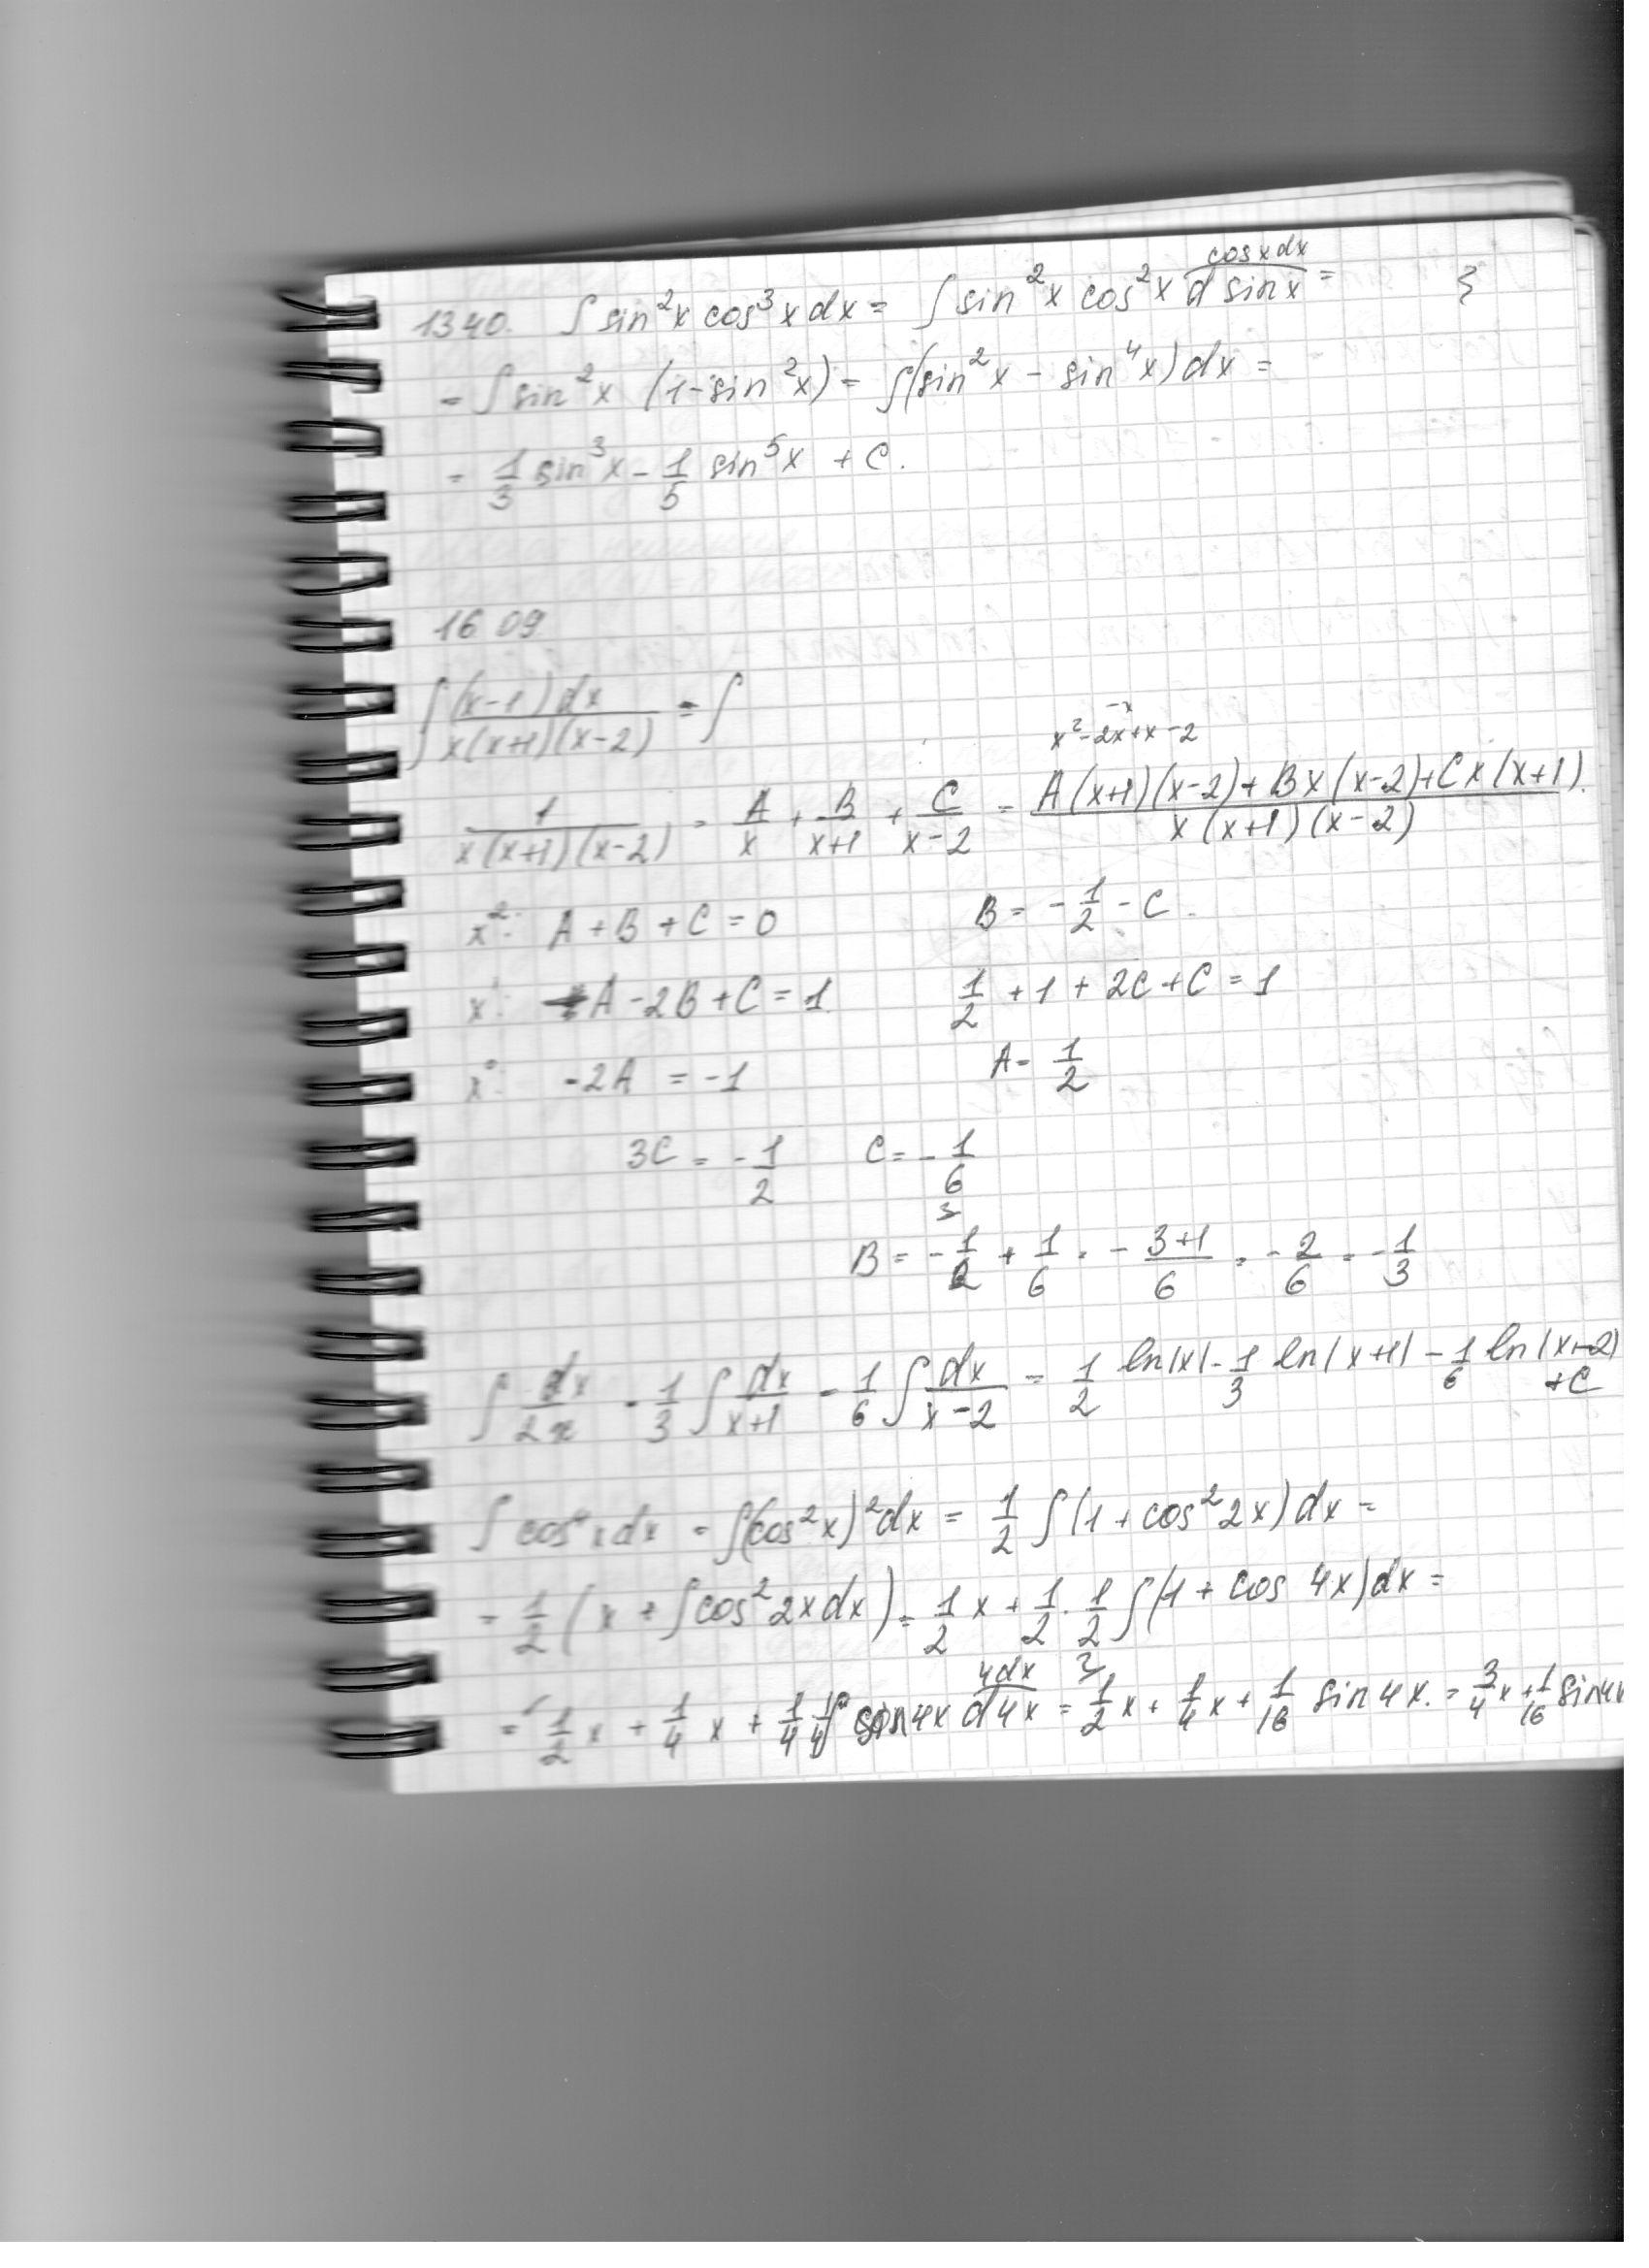 cosx dx
1340. ∫ sin²x cos³x dx = ∫ sin²x cos²x d sinx =
= ∫ sin²x (1-sin²x) = ∫(sin²x - sin⁴x) dx =
= 1/3 sin³x - 1/5 sin⁵x + C.
1609
∫ (x-1) dx / x(x+1)(x-2) = ∫
-x
x²-2x+x-2
1 / x(x+1)(x-2) = A/x + B/(x+1) + C/(x-2) = A(x+1)(x-2)+Bx(x-2)+Cx(x+1) / x(x+1)(x-2)
x²: A + B + C = 0 B = -1/2 - C.
x¹: -A - 2B + C = 1 1/2 + 1 + 2C + C = 1
x⁰: -2A = -1 A = 1/2
3C = -1/2 C = -1/6
B = -1/2 + 1/6 = - 3+1/6 = -2/6 = -1/3
∫ dx/2x - 1/3 ∫ dx/(x+1) - 1/6 ∫ dx/(x-2) = 1/2 ln|x| - 1/3 ln|x+1| - 1/6 ln|x-2|
+C
∫ cos⁴x dx = ∫(cos²x)² dx = 1/2 ∫(1+cos²2x) dx =
= 1/2 (x + ∫cos²2x dx) = 1/2 x + 1/2 · 1/2 ∫(1 + cos 4x) dx =
4dx
= 1/2 x + 1/4 x + 1/4 1/4 ∫ 4x d4x = 1/2 x + 1/4 x + 1/16 sin 4x. = 3/4 x + 1/16 sin4x